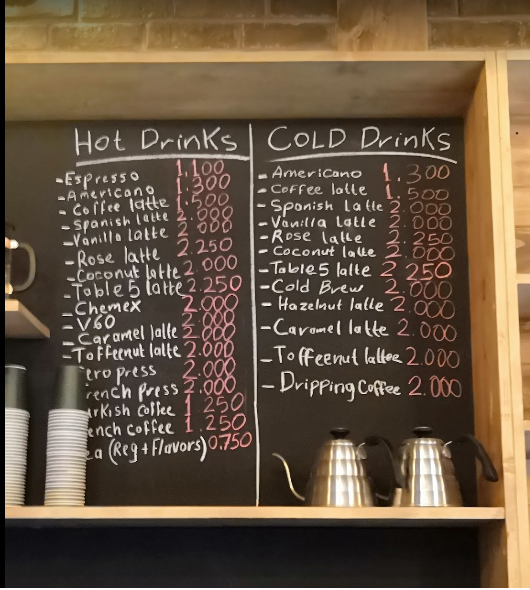 Hot Drinks
- Espresso 1.100
- Americano 1.300
- Coffee latte 1.500
- Spanish latte 2.000
- Vanilla latte 2.000
- Rose latte 2.250
- Coconut latte 2.000
- Table 5 latte 2.250
- Chemex 2.000
- V60 2.000
- Caramel latte 2.000
- Toffeenut latte 2.000
ero press 2.000
rench press 2.000
rkish coffee 1.250
ench coffee 1.250
ea (Reg + Flavors) 0.750
COLD Drinks
- Americano 1.300
- Coffee latte 1.500
- Spanish latte 2.000
- Vanilla latte 2.000
- Rose latte 2.250
- Coconut latte 2.000
- Table 5 latte 2.250
- Cold Brew 2.000
- Hazelnut latte 2.000
- Caramel latte 2.000
- Toffeenut lattee 2.000
- Dripping Coffee 2.000